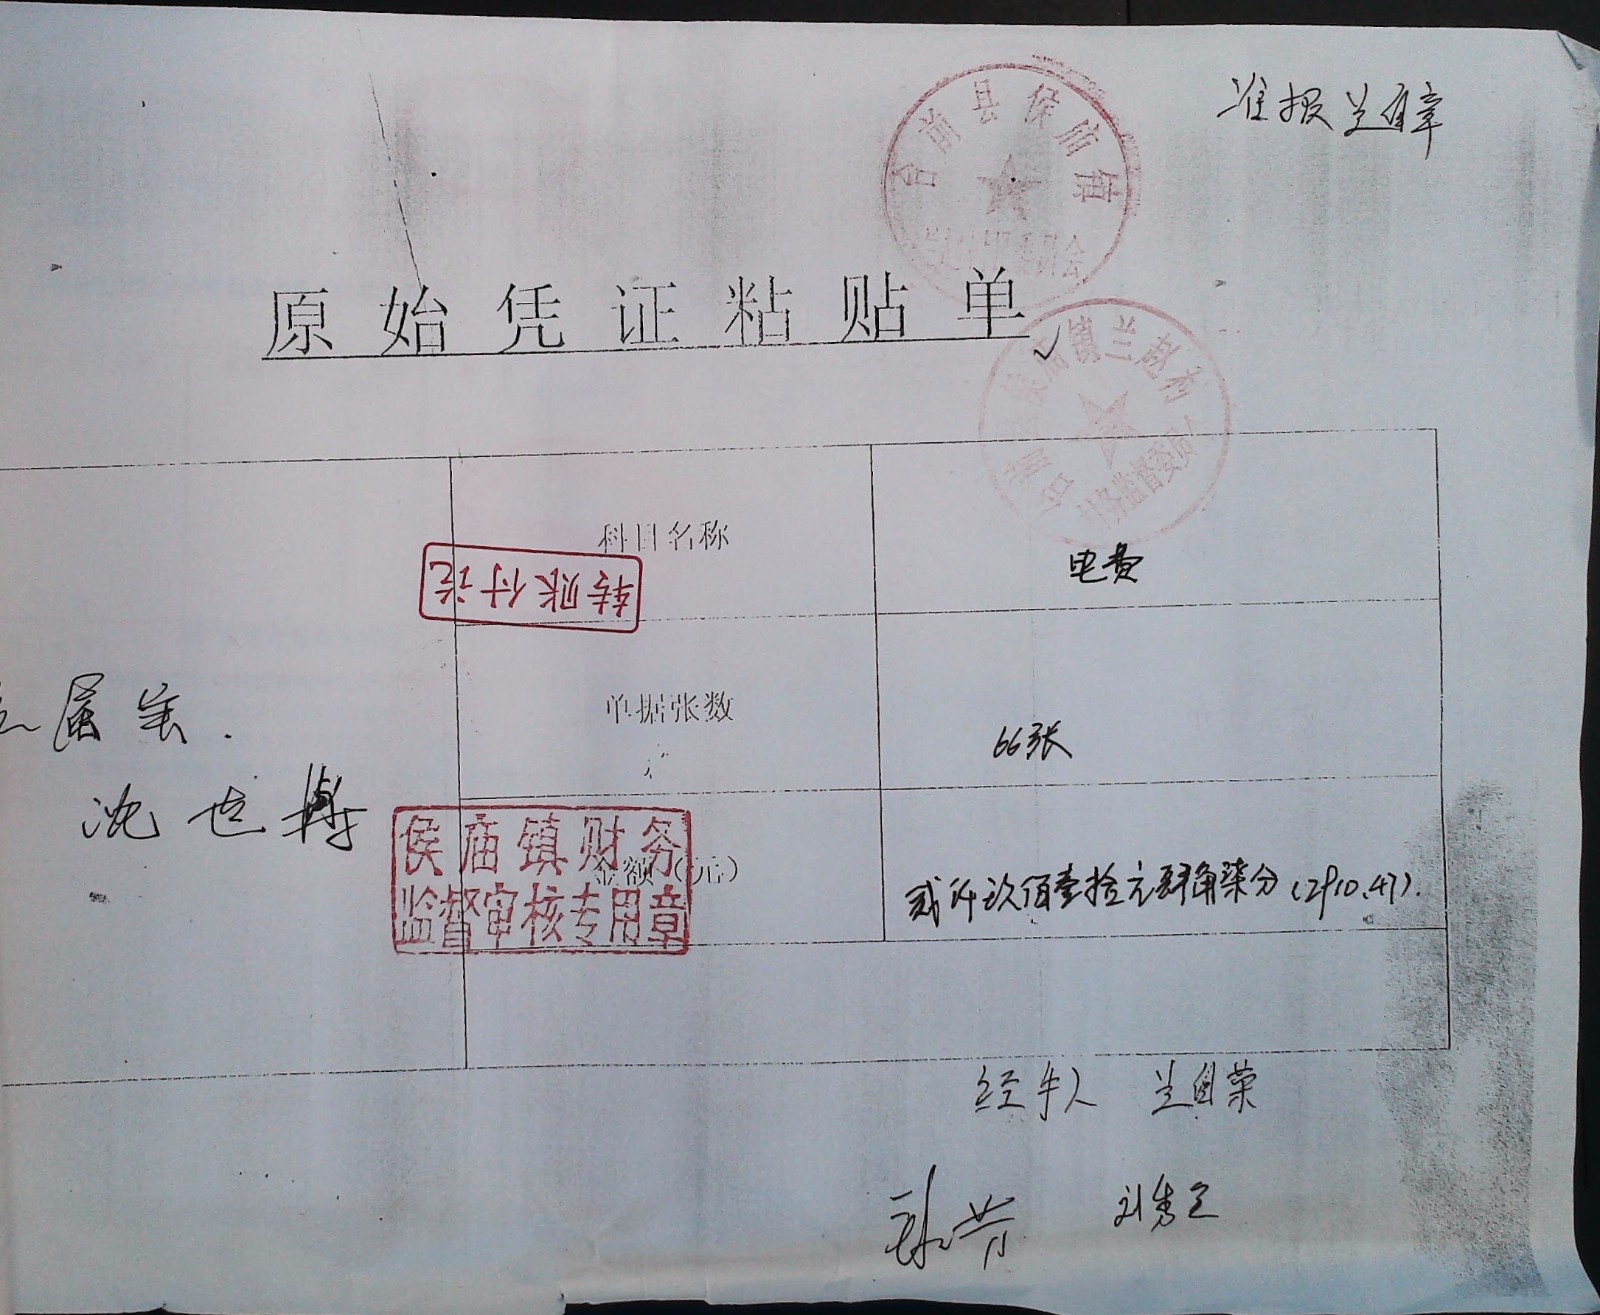 准报 兰自章
台前县侯庙镇
原始凭证粘贴单
侯庙镇兰赵村
村务监督委员会
科目名称
电费
转账付讫
单据张数
66张
属实.
沈世博
金额（元）
贰仟玖佰壹拾元肆角柒分(2910.47).
侯庙镇财务
监督审核专用章
经手人 兰自荣
刘秀立